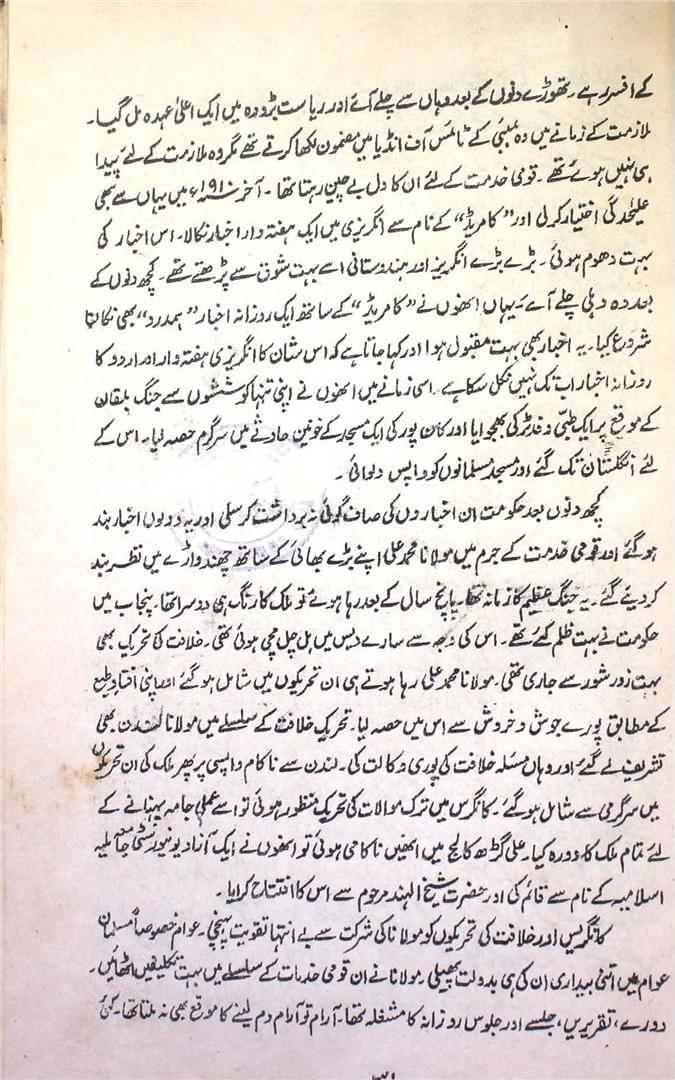 کے افسر رہے۔ تھوڑے دنوں کے بعد وہاں سے چلے آئے اور ریاست بڑودہ میں ایک اعلیٰ عہدہ مل گیا۔
ملازمت کے زمانے میں وہ بمبئی کے ٹائمس آف انڈیا میں مضمون لکھا کرتے تھے مگر وہ ملازمت کے لئے پیدا
ہی نہیں ہوئے تھے۔ قومی خدمت کے لئے ان کا دل بے چین رہتا تھا۔ آخر سنہ ۱۹۱۰ء میں یہاں سے بھی
علیٰحدگی اختیار کر لی اور ”کامریڈ“ کے نام سے انگریزی میں ایک ہفتہ وار اخبار نکالا۔ اس اخبار کی
بہت دھوم ہوئی۔ بڑے بڑے انگریز اور ہندوستانی اسے بہت شوق سے پڑھتے تھے۔ کچھ دنوں کے
بعد وہ دہلی چلے آئے۔ یہاں انھوں نے ”کامریڈ“ کے ساتھ ایک روزانہ اخبار ”ہمدرد“ بھی نکالنا
شروع کیا۔ یہ اخبار بھی بہت مقبول ہوا اور کہا جاتا ہے کہ اس شان کا انگریزی ہفتہ وار اور اردو کا
روزانہ اخبار اب تک نہیں نکل سکا ہے۔ اسی زمانے میں انھوں نے اپنی تنہا کوششوں سے جنگ بلقان
کے موقع پر ایک طبّی وفد ٹرکی بھجوایا اور کان پور کی ایک مسجد کے خونین حادثے میں سرگرم حصہ لیا۔ اس کے
لئے انگلستان تک گئے اور مسجد مسلمانوں کو واپس دلوائی۔
کچھ دنوں بعد حکومت ان اخباروں کی صاف گوئی نہ برداشت کر سکی اور یہ دونوں اخبار بند
ہو گئے اور قومی خدمت کے جرم میں مولانا محمد علی اپنے بڑے بھائی کے ساتھ چھندواڑے میں نظر بند
کر دیئے گئے۔ یہ جنگ عظیم کا زمانہ تھا۔ پانچ سال کے بعد رہا ہوئے تو ملک کا رنگ ہی دوسرا تھا۔ پنجاب میں
حکومت نے بہت ظلم کئے تھے۔ اس کی وجہ سے سارے دیس میں ہل چل مچی ہوئی تھی۔ خلافت کی تحریک بھی
بہت زور شور سے جاری تھی۔ مولانا محمد علی رہا ہوتے ہی ان تحریکوں میں شامل ہو گئے اور اپنی افتاد طبع
کے مطابق پورے جوش و خروش سے اس میں حصہ لیا۔ تحریک خلافت کے سلسلے میں مولانا لندن بھی
تشریف لے گئے اور وہاں مسئلہ خلافت کی پوری وکالت کی۔ لندن سے ناکام واپسی پر پھر ملک کی ان تحریکوں
میں سرگرمی سے شامل ہو گئے۔ کانگرس میں ترک موالات کی تحریک منظور ہوئی تو اسے عملی جامہ پہنانے کے
لئے تمام ملک کا دورہ کیا۔ علی گڑھ کالج میں انھیں ناکامی ہوئی تو انھوں نے ایک آزاد یونیورسٹی جامعہ ملیہ
اسلامیہ کے نام سے قائم کی اور حضرت شیخ الہند مرحوم سے اس کا افتتاح کرایا۔
کانگریس اور خلافت کی تحریکوں کو مولانا کی شرکت سے بے انتہا تقویت پہنچی۔ عوام خصوصاً مسلمان
عوام میں اتنی بیداری ان کی ہی بدولت پھیلی۔ مولانا نے ان قومی خدمات کے سلسلے میں بہت تکلیفیں اٹھائیں۔
دورے، تقریریں، جلسے اور جلوس روزانہ کا مشغلہ تھا۔ آرام تو آرام دم لینے کا موقع بھی نہ ملتا تھا۔ کئی